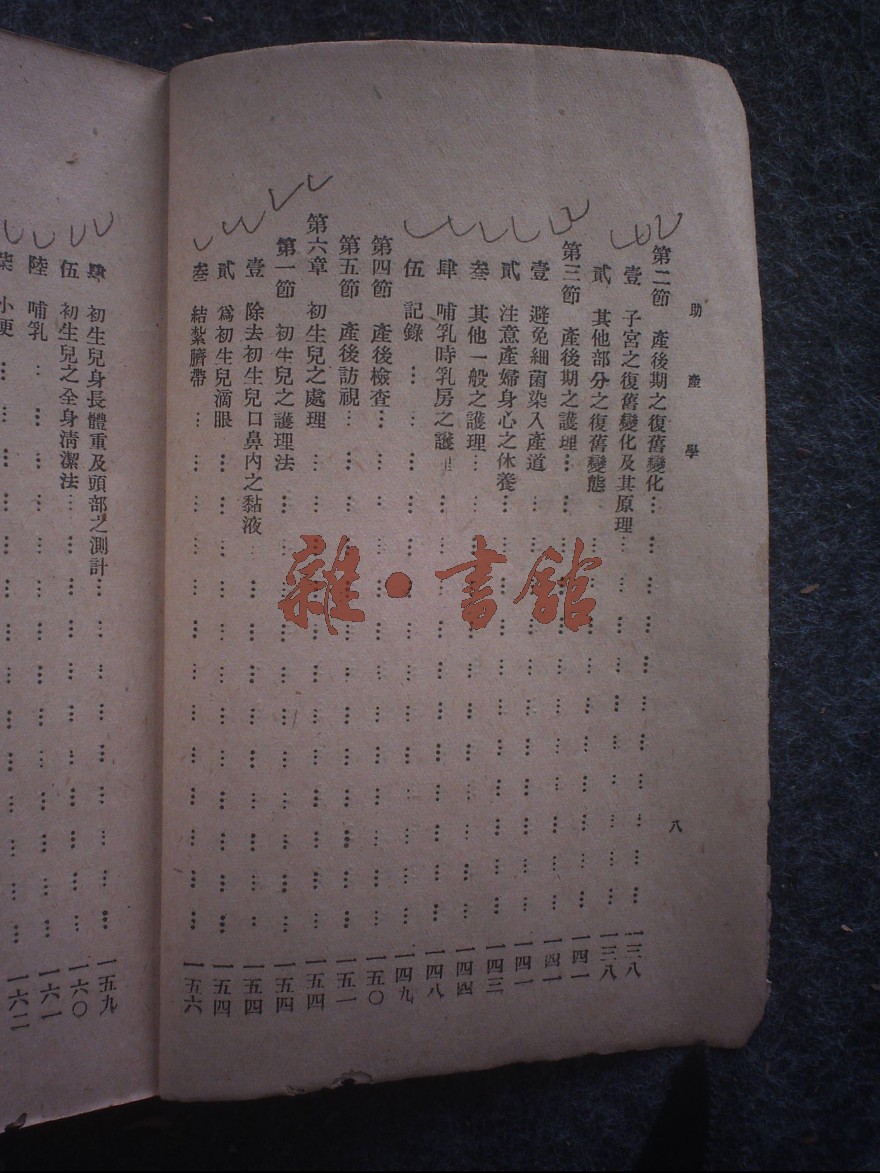 助產學 八
第二節 產後期之復舊變化……一三八
壹 子宮之復舊變化及其原理……一三八
貳 其他部分之復舊變態……一四一
第三節 產後期之護理……一四一
壹 避免細菌染入產道……一四一
貳 注意產婦身心之休養……一四三
叁 其他一般之護理……一四四
肆 哺乳時乳房之護理……一四八
伍 記錄……一四九
第四節 產後檢查……一五〇
第五節 產後訪視……一五一
第六章 初生兒之處理……一五四
第一節 初生兒之護理法……一五四
壹 除去初生兒口鼻內之黏液……一五四
貳 為初生兒滴眼……一五四
叁 結紮臍帶……一五六
肆 初生兒身長體重及頭部之測計……一五九
伍 初生兒之全身清潔法……一六〇
陸 哺乳……一六一
柒 小便……一六二
雜·書館